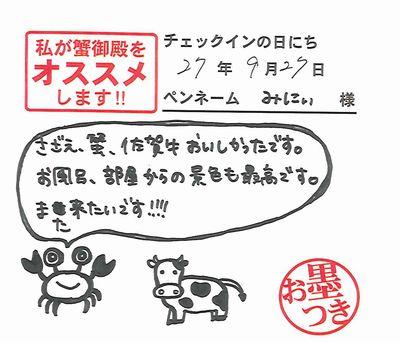 私が蟹御殿を
オススメ
します!!
チェックインの日にち
27年9月27日
ペンネーム みにぃ 様
さざえ、蟹、佐賀牛おいしかったです。
お風呂、部屋からの景色も最高です。
また来たいです!!!!
お墨つき